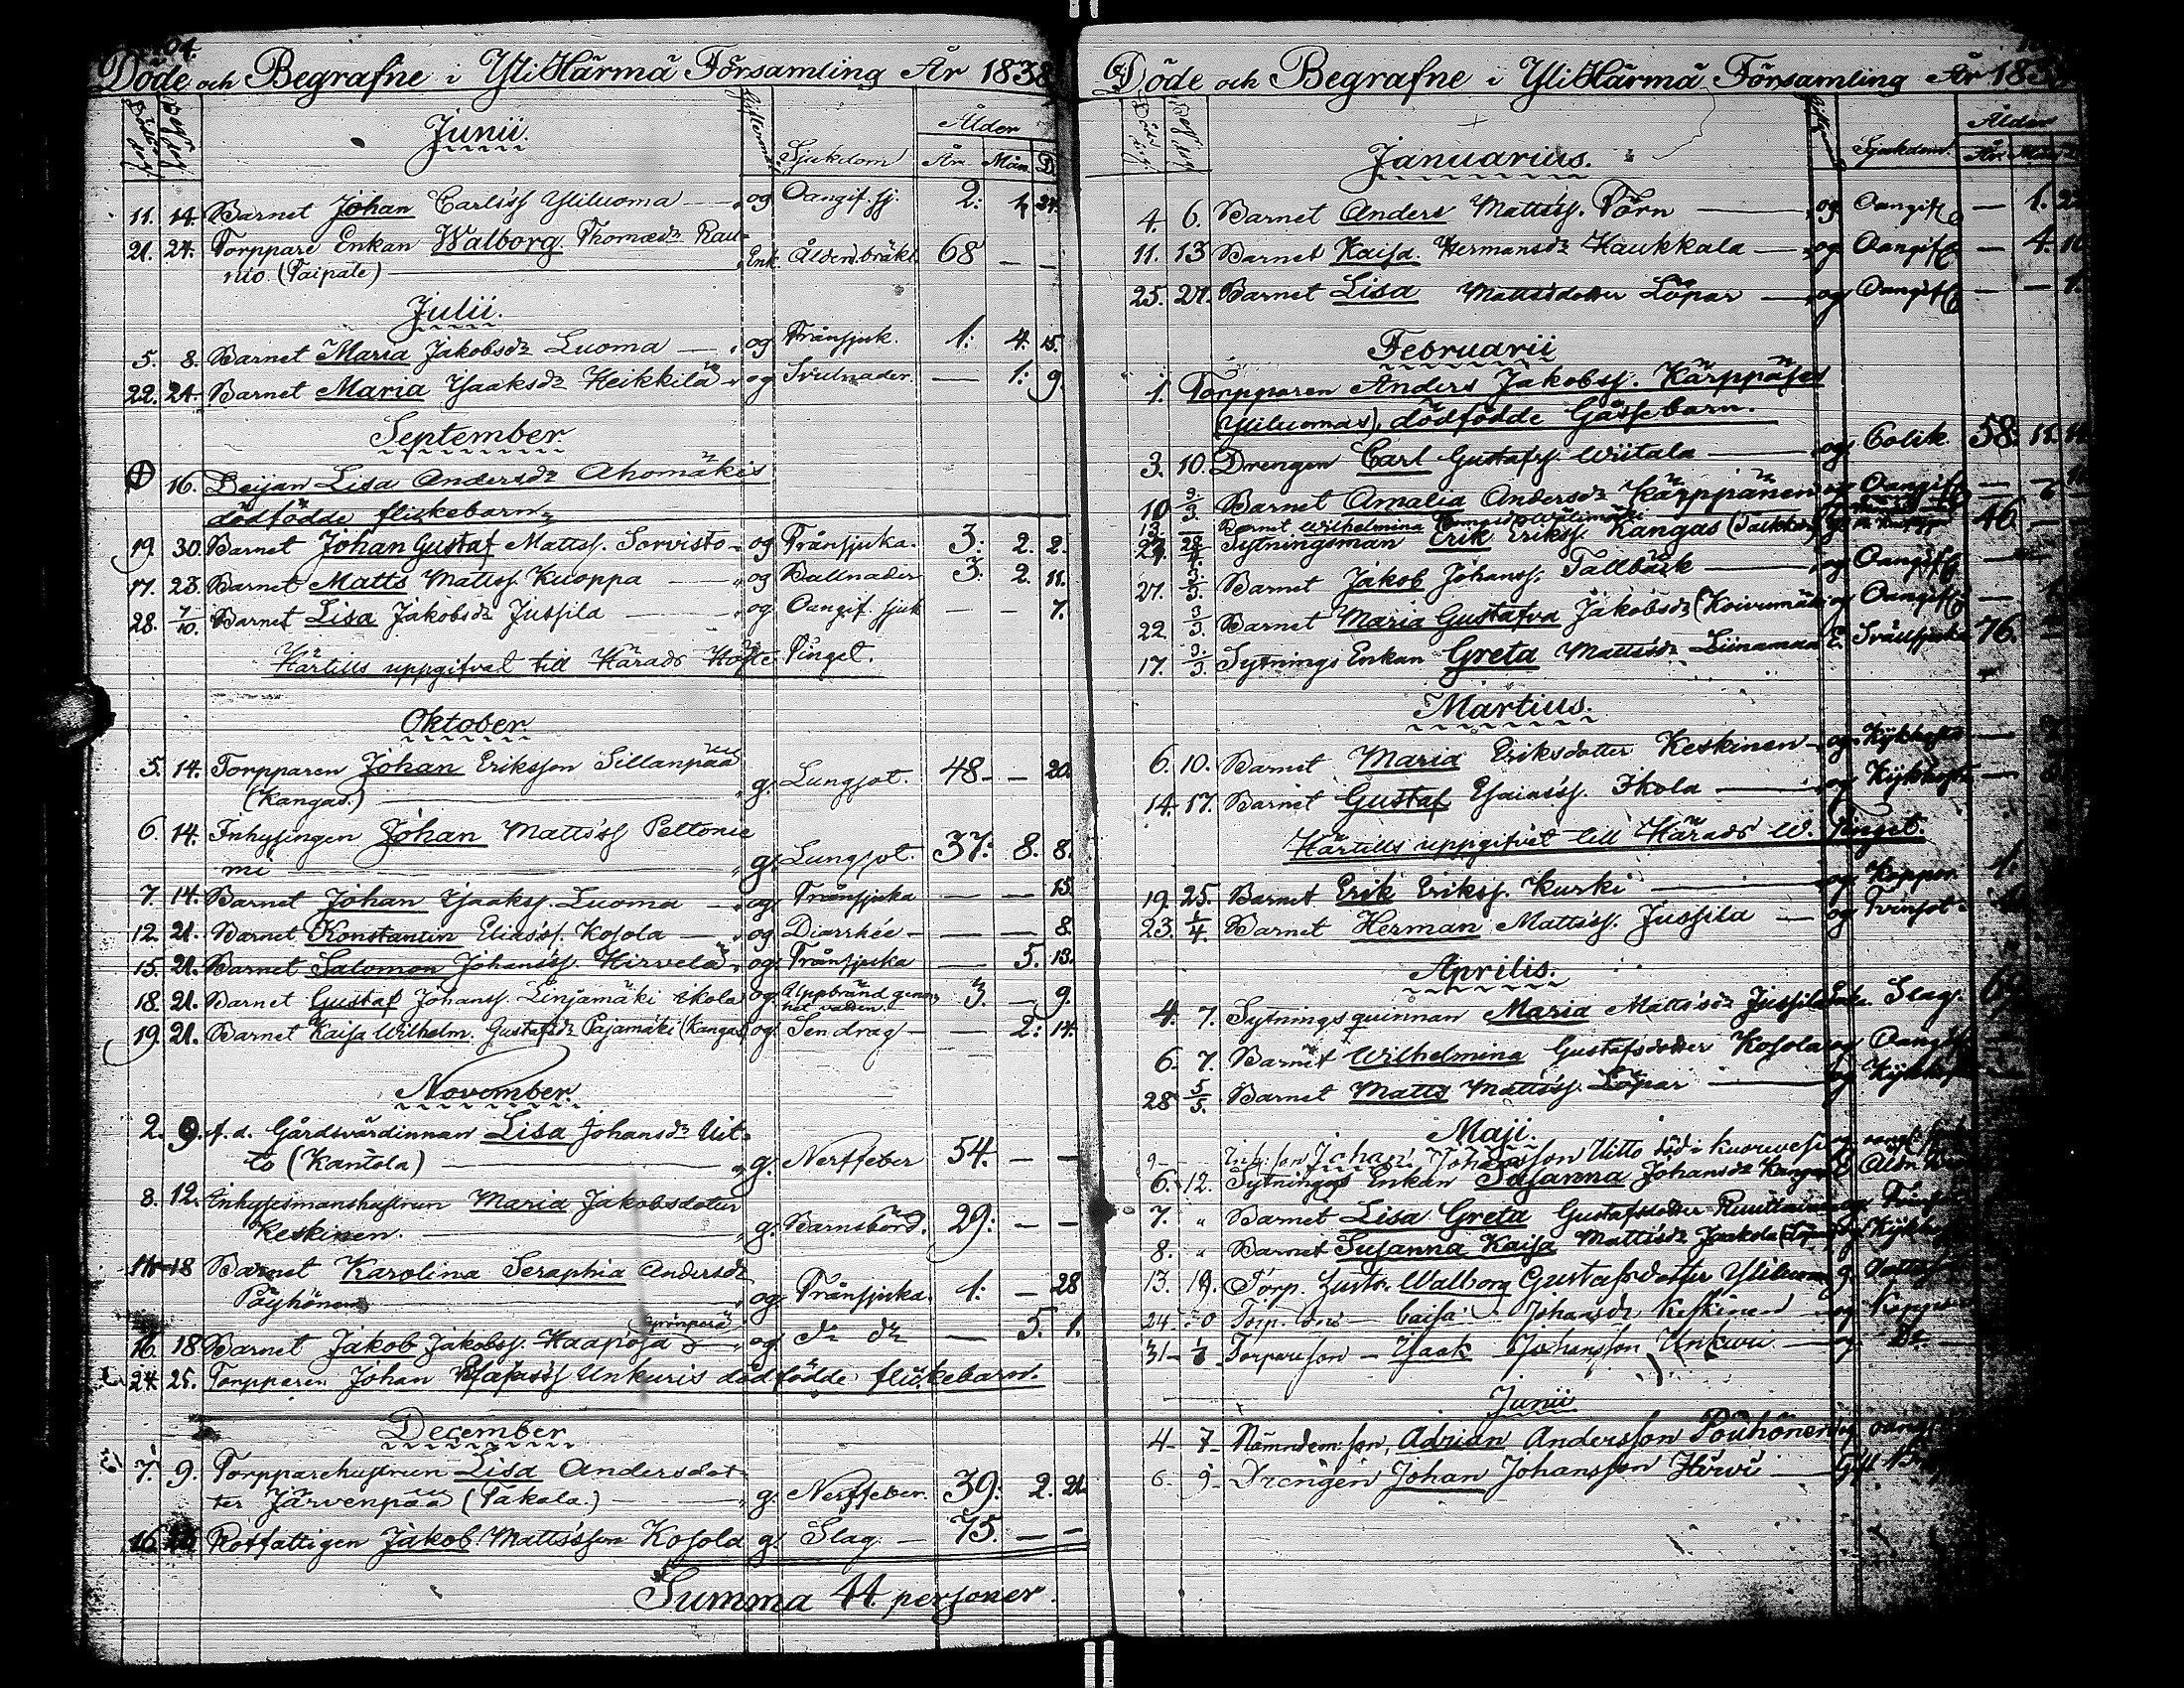 104.
Döde och Begrafne i YliHärmä Församling År 1838
Döde dag Begr. dag Junii. Sjukdom Ålder År. Mån. D.
11. 14. Barnet Johan Carlsss Yliluoma — og Oangif. sj. 2: 1, 24.
21. 24. Torppare Enkan Walborg Thomædr Rau-
nio. (Paipale) — Enk. Ålderd.bräkl. 68 — —
Julii.
5. 8. Barnet Maria Jakobsdr Luoma — og Trånsjuk. 1: 4. 15.
22. 24. Barnet Maria Isaaksdr Heikkilä og Svulnader. — 1: 9.
September.
16. Peijan Lisa Andersdr Ahomäkis
dödfödde flickebarn
19. 30. Barnet Johan Gustaf Mattss. Sorvisto og Trånsjuka. 3: 2. 2.
17. 23. Barnet Matts Mattss. Kuoppa — og Bullnader 3: 2. 11.
28. 7/10. Barnet Lisa Jakobsdr Jussila — og Oangif. sjuk — — 7.
Härtills uppgifvet till Härads Höste Tinget.
Oktober.
5. 14. Torpparen Johan Eriksson Sillanpää
(Kangas.) — g. Lungsot. 48 — — 20.
6. 14. Inhysingen Johan Mattsss Peltonie
mi — g. Lungsot. 37: 8. 8.
7. 14. Barnet Johan Isaakss. Luoma — og Trånsjuka — — 15.
12. 21. Barnet Konstantin Eliasss. Kosola — og Diarrhée — — — 8.
15. 21. Barnet Salomon Johansss. Hirvelä og. Trånsjuka — 5. 13.
18. 21. Barnet Gustaf Johanss. Linjamäki Ikola og. Uppbränd genom
het vatten. 3. — 9.
19. 21. Barnet Kaisa Wilhelm. Gustafsdr Pajamäki (Kangas) og. Sendrag — — 2: 14.
November.
2. 9. f. d. Gårdsvärdinnan Lisa Johansdr Uit-
to (Kantola) — g. Nerffeber 54. — —
8. 12. Inhysesmanshustrun Maria Jakobsdotter
Keskinen. — g. Barnsbörd. 29: — —
18 Barnet Karolina Seraphia Andersdr
Päyhönen — og Trånsjuka. 1: — 28
16. 18. Barnet Jakob Jakobss. Haapoja — og dr dr — 5. 1.
24. 25. Torpparen Johan Unkuris dödfödde flickebarn.
December
7. 9. Torpparehustrun Lisa Andersdot-
ter Järvenpää (Takala.) — g. Nerffeber. 39: 2. 21.
16. Rotfattigen Jakob Mattsson Kosola g. Slag — 75. — —
Summa 44 personer.
Döde och Begrafne i YliHärmä Församling År 183
Död. dag. Begr. dag Januarius. Sjukdom. Ålder År. Mån
4. 6. Barnet Anders Mattsss. Törn — og Oangif — 1.
11. 13 Barnet Kaisa Hermansdr Haukkala — og Oangif — 4.
25. 27. Barnet Lisa Mattsdotter Löpar — og Oangif — —
Februarii
1. Torpparen Anders Jakobss. Kärppäses
(Yliluomas), dödfödde Gåssebarn.
3. 10. Drengen Carl Gustafss. Wiitala — og Colik. 58. 11.
10 9/3. Barnet Amalia Andersdr Kärppänen og Oangif —
13. — Barnet Wilhelmina
24. Sytningsman Erik Erikss. Kangas g. 46
27. 3/3. Barnet Jakob Johanss. Tallbäck — og Oangif —
22 3/3. Barnet Maria Gustafva Jakobsdr (Koivumäki og Oangif —
17. 3/3. Sytnings Enkan Greta Mattsdr Liinamaa E. 76.
Martius.
6. 10. Barnet Maria Eriksdotter Keskinen og Kykhosta —
14. 17. Barnet Gustaf Esaiasss. Ikola — og Kykhosta —
Härtills uppgifvet till Härads W. Tinget.
19. 25. Barnet Erik Erikss. Kurki — og Koppor. 1.
23. 1/4. Barnet Herman Mattsss. Jussila — og
Aprilis.
4. 7. Sytningsquinnan Maria Mattsdr Jussila Enk. Slag.
6. 7. Barnet Wilhelmina Gustafsdotter Kosola og Oangif
28 5/5. Barnet Matts Mattsss. Löpar — og Kykhosta
Maji.
9 — Johan Johansson Uitto död i Kuorwesi og
6. 12. Sytnings Enkan Susanna Johansdr Kangas E.
7. " Barnet Lisa Greta Gustafsdotter og
8. " Barnet Susanna Kaisa Mattsdr Jaakola (Löpar) og Kykhosta
13. 19. Torp. hustr. Walborg Gustafsdotter Yliluoma g.
24 Torp. Caisa Johansdr Keskinen — og Koppor
31 — Torparesson — Isaak Johansson Unkuri. — og Do
Junii
4 — 7 — Nämndem: son, Adrian Andersson Pouhönen og oangif
6. 9. Drengen Johan Johansson Hirvi — Gift